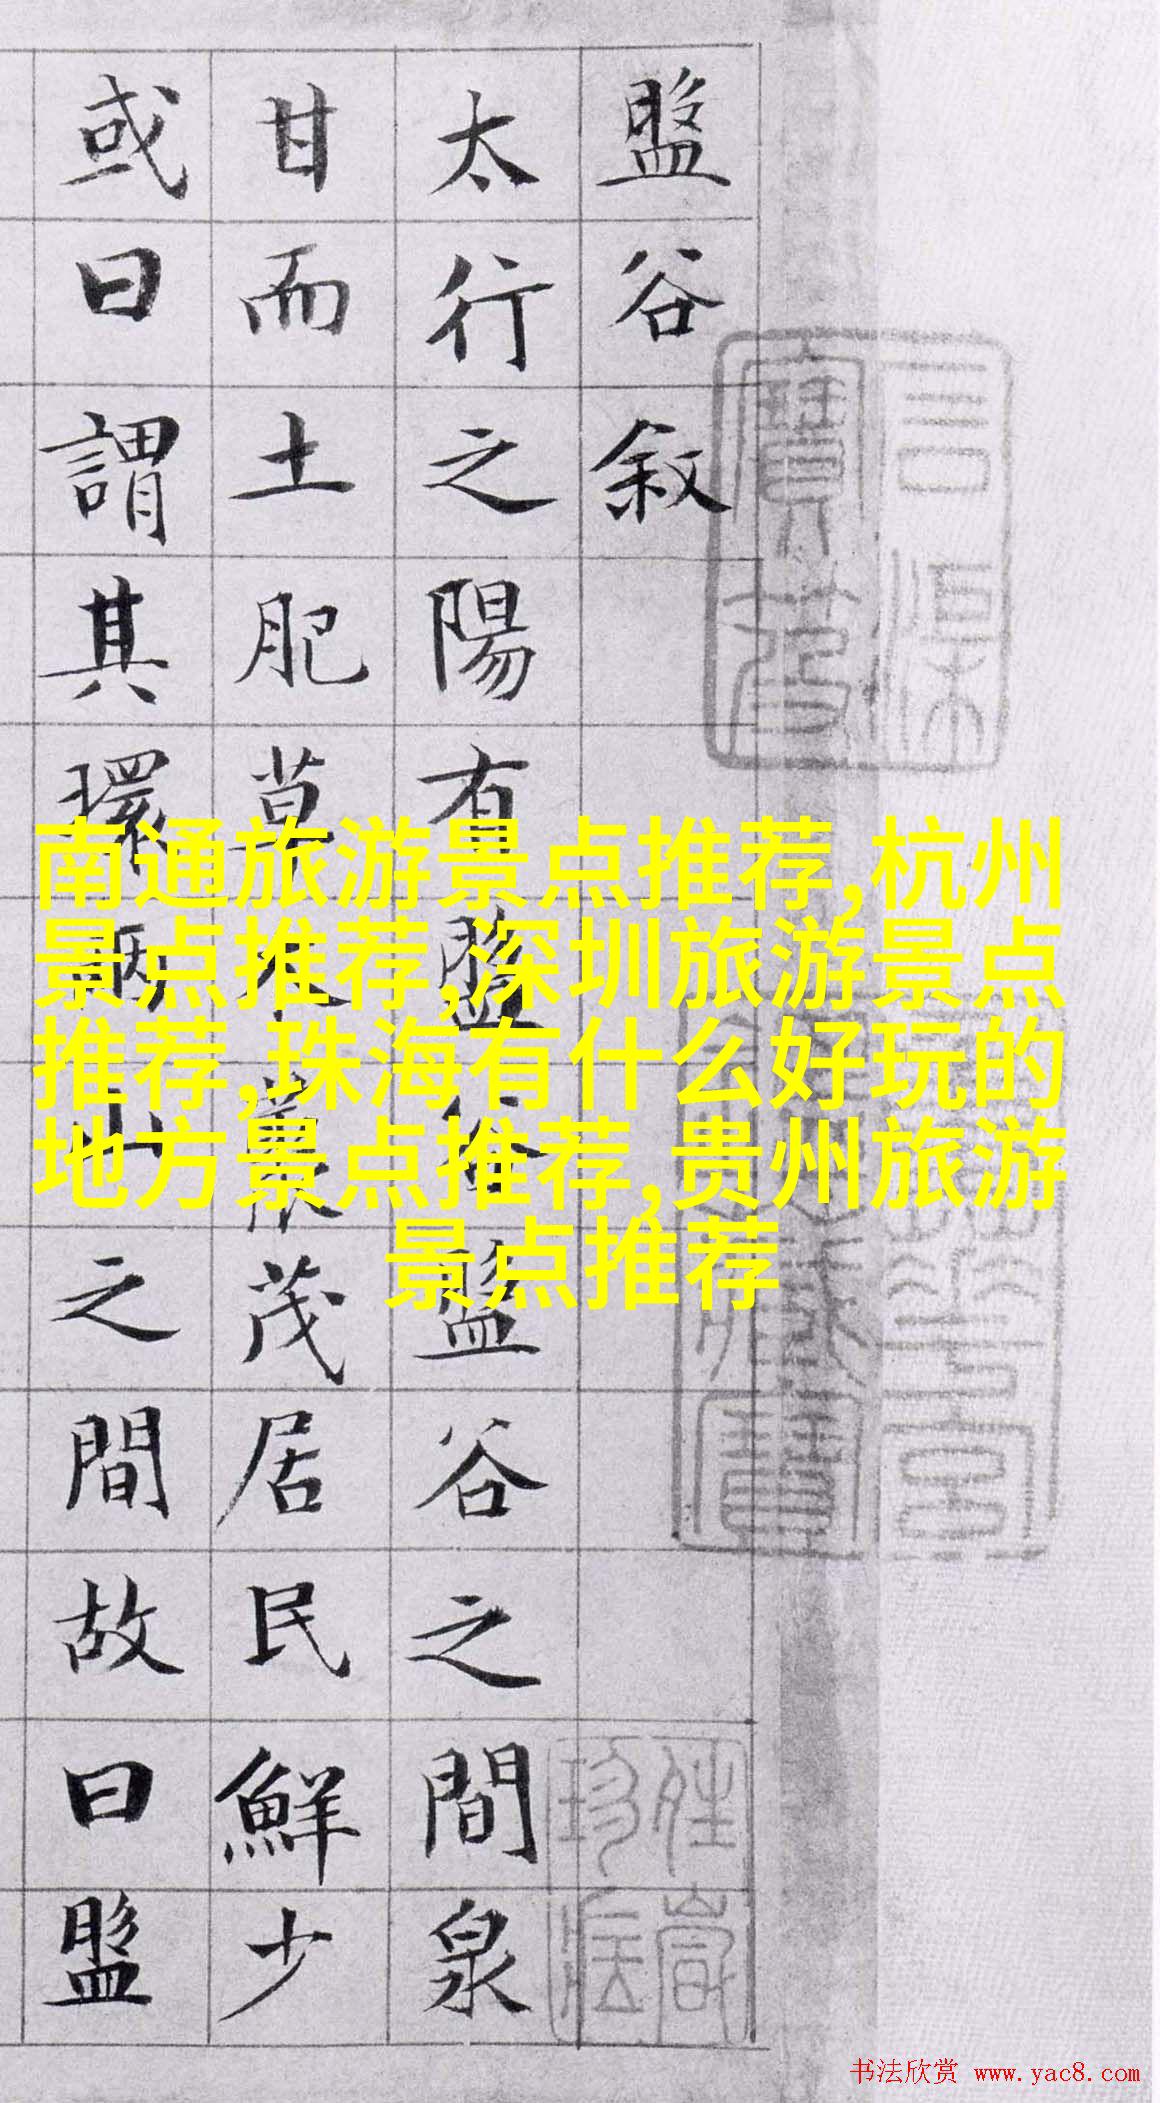 盤谷敘
太行之陽有盤谷盤谷之間泉
甘而土肥草木藂茂居民鮮少
或曰謂其環兩山之間故曰盤
南通旅游景点推荐,杭州
景点推荐,深圳旅游景点
推荐,珠海有什么好玩的
地方景点推荐,贵州旅游
景点推荐
书法欣赏 www.yac8.com